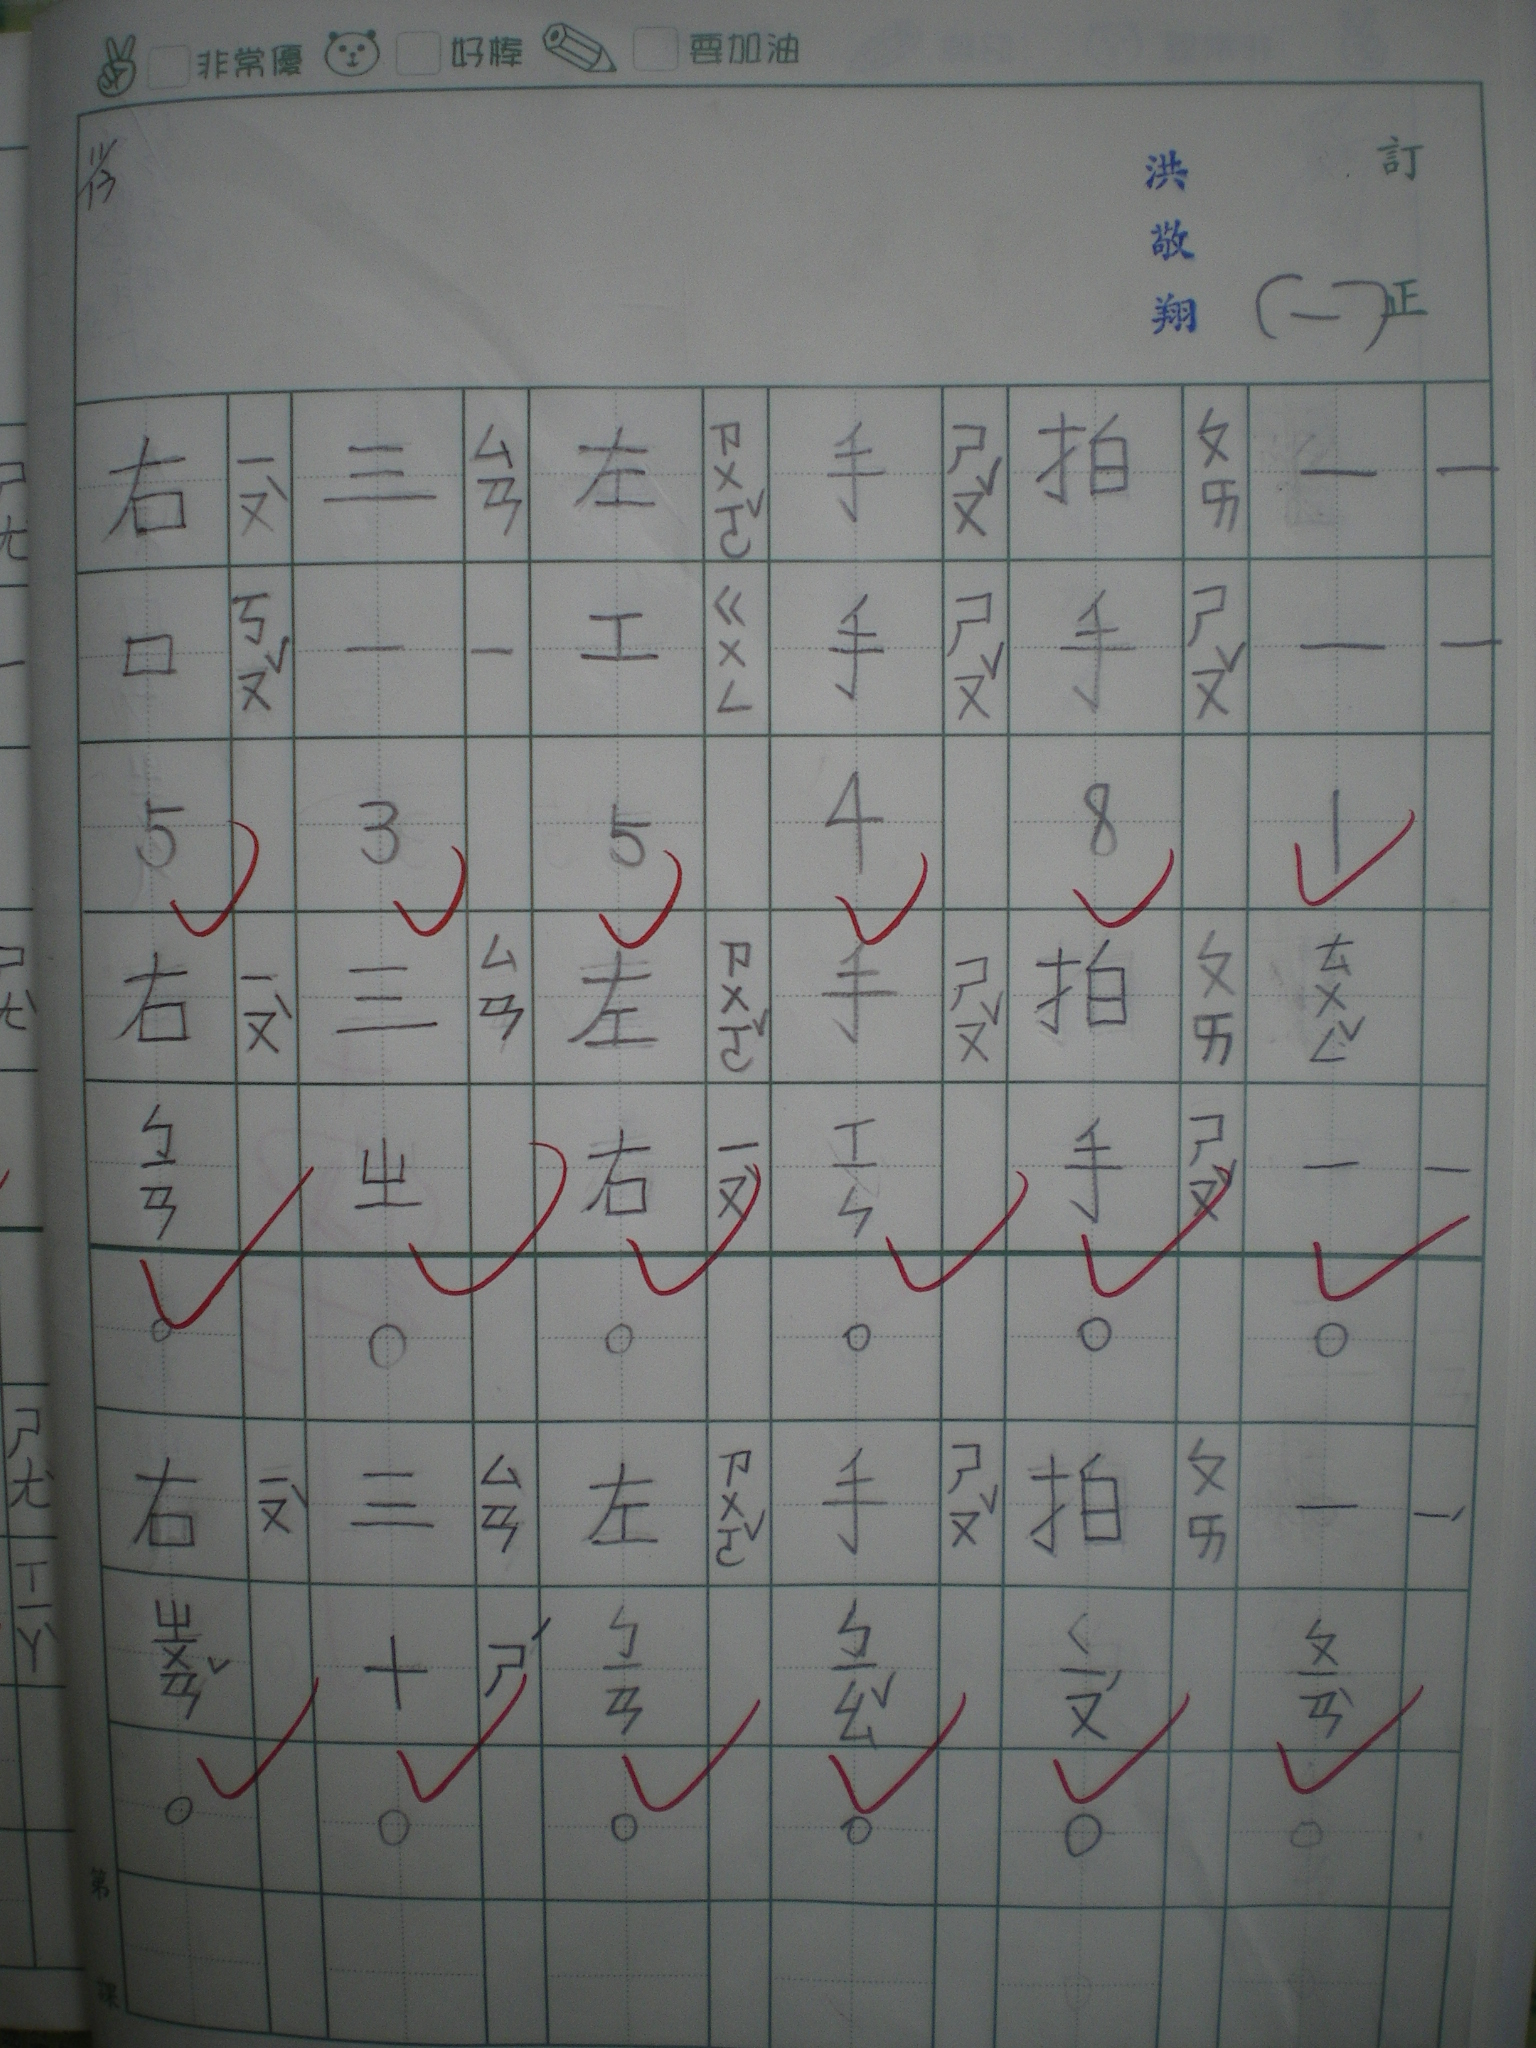 非常優 好棒 要加油
訂正
(一)
洪敬翔
11/13
一 ㄧ 一 ㄧ 1 ㄊㄨㄥˇ 一 ㄧ 。 一 ㄧˊ ㄆㄧㄢˋ 。
拍 ㄆㄞ 手 ㄕㄡˇ 8 拍 ㄆㄞ 手 ㄕㄡˇ 。 拍 ㄆㄞ ㄑㄧㄡˊ 。
手 ㄕㄡˇ 手 ㄕㄡˇ 4 手 ㄕㄡˇ ㄒㄧㄣ 。 手 ㄕㄡˇ ㄅㄧㄠˇ 。
左 ㄗㄨㄛˇ 工 ㄍㄨㄥ 5 左 ㄗㄨㄛˇ 右 ㄧㄡˋ 。 左 ㄗㄨㄛˇ ㄅㄧㄢ 。
三 ㄙㄢ 一 ㄧ 3 三 ㄙㄢ ㄓ 。 三 ㄙㄢ 十 ㄕˊ 。
右 ㄧㄡˋ 口 ㄎㄡˇ 5 右 ㄧㄡˋ ㄅㄧㄢ 。 右 ㄧㄡˋ ㄓㄨㄢˇ 。
第 課